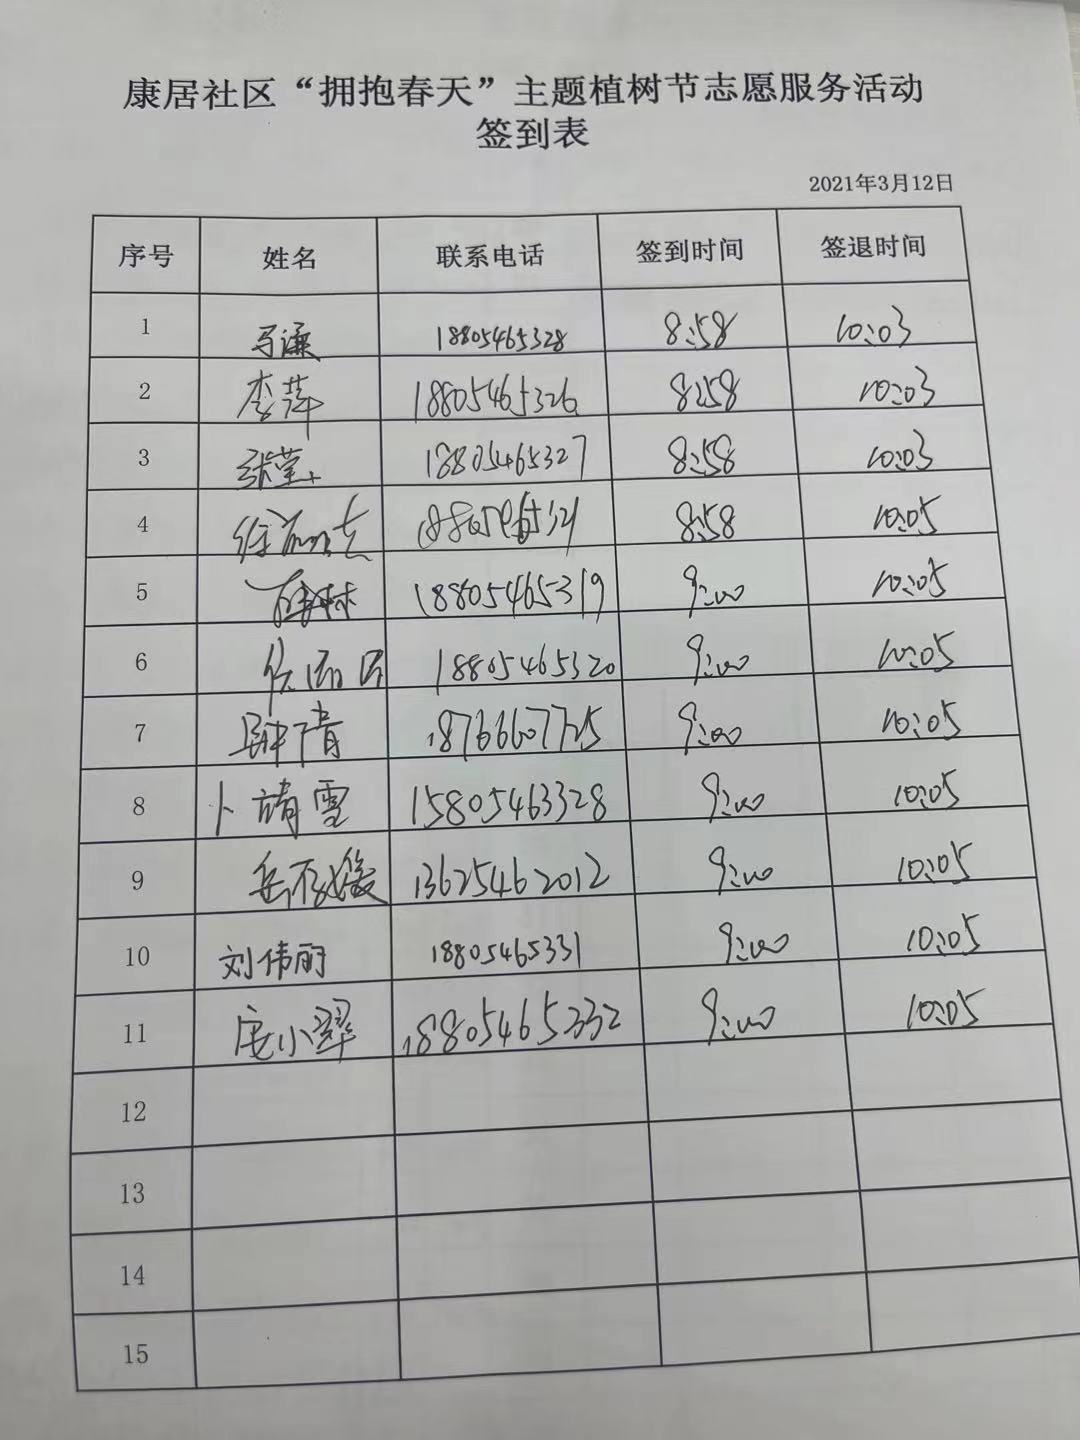 康居社区“拥抱春天”主题植树节志愿服务活动
签到表
2021年3月12日
序号 姓名 联系电话 签到时间 签退时间
1 马谦 18805465328 8:58 10:03
2 李萍 18805465326 8:58 10:03
3 张莹 18805465327 8:58 10:03
4 8:58 10:05
5 18805465319 9:00 10:05
6 18805465320 9:00 10:05
7 18766607725 9:00 10:05
8 卜靖雪 15805463328 9:00 10:05
9 13625462012 9:00 10:05
10 刘伟丽 18805465331 9:00 10:05
11 庞小翠 18805465332 9:00 10:05
12
13
14
15